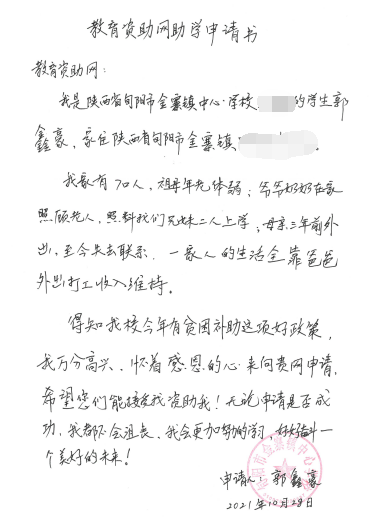 教育资助网助学申请书
教育资助网:
我是陕西省旬阳市金寨镇中心学校 的学生郭
鑫豪,家住陕西省旬阳市金寨镇 。
我家有7口人,祖母年老体弱;爷爷奶奶在家
照顾老人,照料我们兄妹二人上学;母亲三年前外
出,至今失去联系.一家人的生活全靠爸爸
外出打工收入维持。
得知我校今年有贫困补助这项好政策,
我万分高兴、怀着感恩的心来向贵网申请,
希望您们能接受我资助我!无论申请是否成
功,我都不会沮丧,我会更加努力的学习,好好奋斗一
个美好的未来!
申请人:郭鑫豪
2021年10月28日